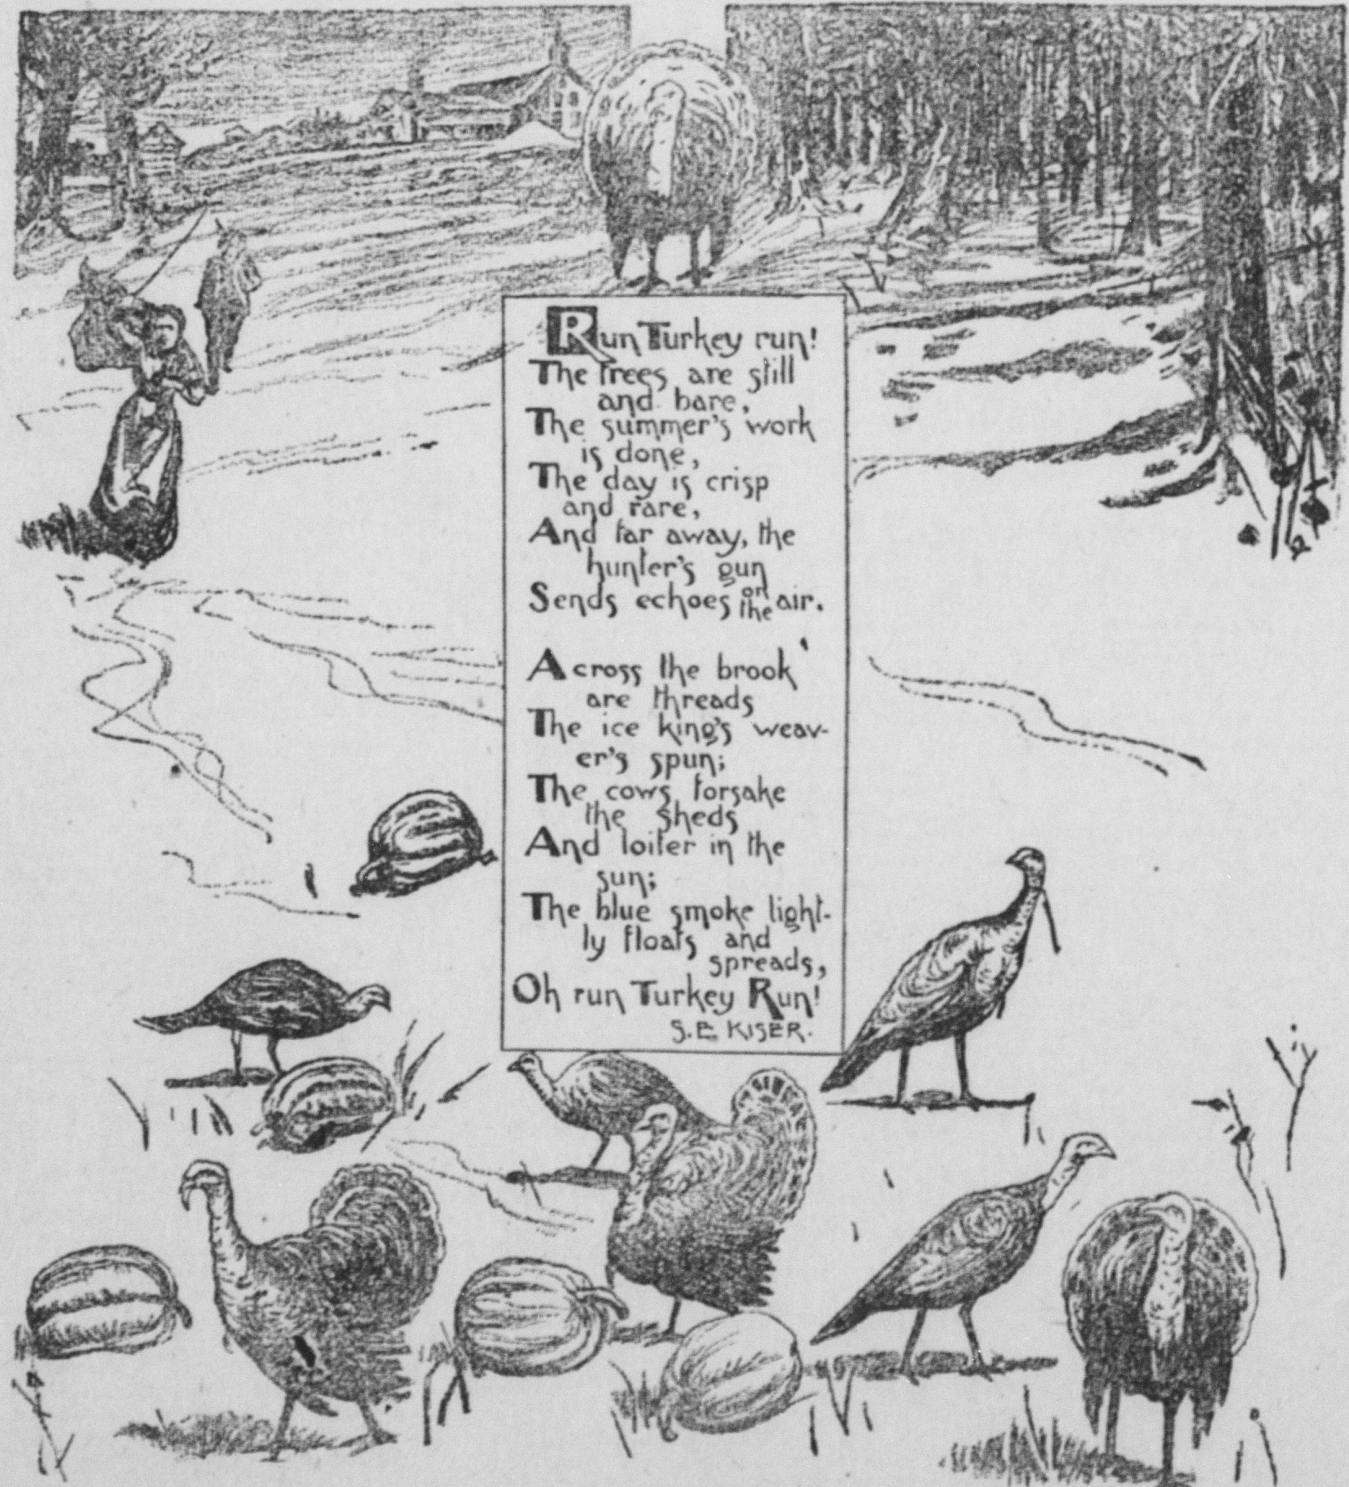 Run Turkey run!
The trees are still
and bare,
The summer's work
is done,
The day is crisp
and rare,
And far away, the
hunter's gun
Sends echoes on the air.
Across the brook
are threads
The ice king's weav-
er's spun;
The cows forsake
the sheds
And loiter in the
sun;
The blue smoke light-
ly floats and
spreads,
Oh run Turkey Run!
S. E. KISER.